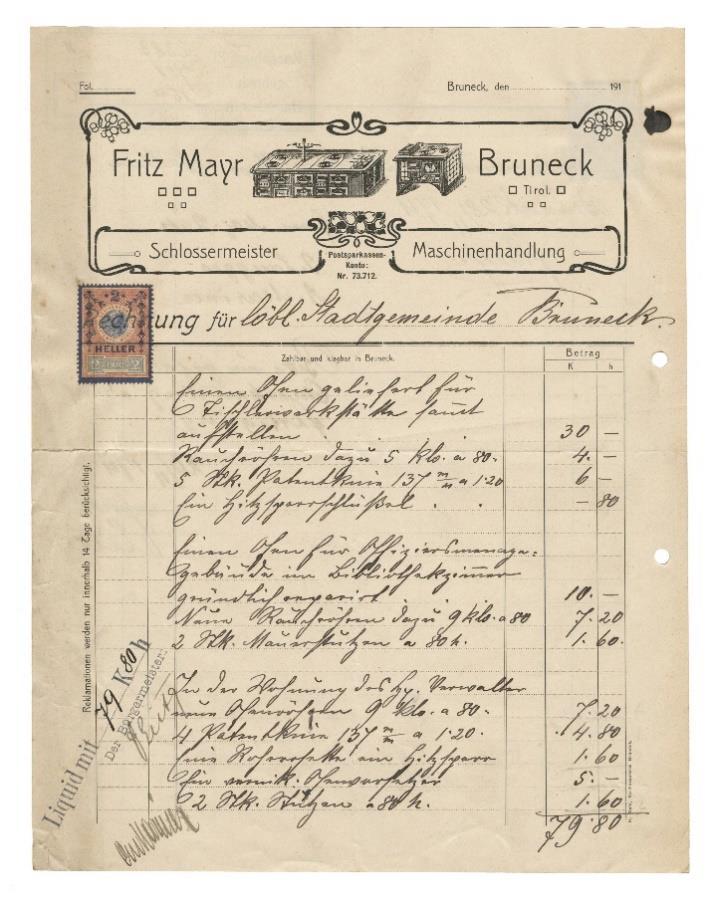 Fol.
Bruneck, den 191
Fritz Mayr Bruneck
Tirol.
Schlossermeister Maschinenhandlung
Postsparkassen-
Konto:
Nr. 73.712.
2
HELLER
Rechnung für löbl. Stadtgemeinde Bruneck.
Zahlbar und klagbar in Bruneck. Betrag
K h
Einen Ofen geliefert für
Tischlerwerkstätte samt
aufstellen . . . 30 –
Rauchröhren dazu 5 klo. a 80. 4. –
5 Stk. Patentknie 137 m/m a 1.20 6 –
Ein Hitzsperrschlüßel . . – 80
Einen Ofen für Offiziersmenage=
gebäude im Bibliothekzimmer
gründlich reparirt . . 10. –
Neue Rauchröhren dazu 9 klo. a 80 7. 20
2 Stk. Mauerstutzen a 80 h. 1. 60.
In der Wohnung des H. Verwalter
neue Ofenröhren 9 klo. a 80. 7. 20
4 Patentknie 137 m/m a 1.20. 4. 80
Eine Rohrrosette ein Hitzsperr 1. 60
Ein vernik. Ofenvorsetzer 5. –
2 Stk. Stutzen a 80 h. 1. 60
79. 80
Reklamationen werden nur innerhalb 14 Tage berücksichtigt.
Liquid mit 79 K 80 h
Der Bürgermeister: